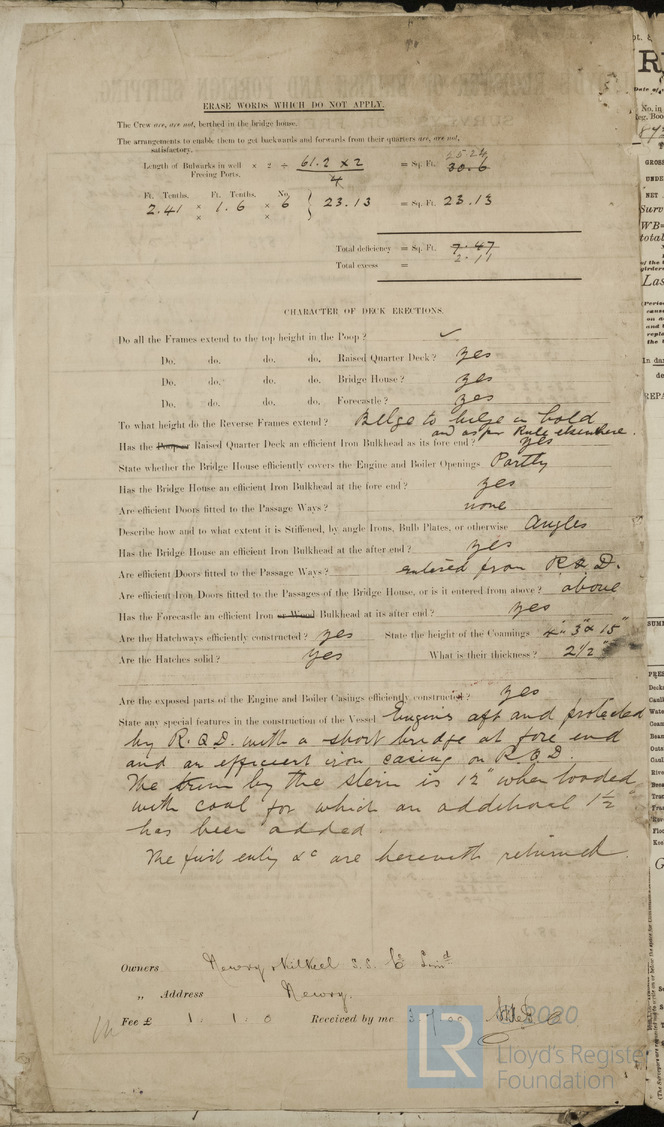 ERASE WORDS WHICH DO NOT APPLY.
The Crew are, are not, berthed in the bridge house.
The arrangements to enable them to get backwards and forwards from their quarters are, are not,
satisfactory.
25.24
Length of Bulwarks in well × 2 ÷ 61.2 × 2 = Sq. Ft. 30.6
Freeing Ports. 4
Ft. Tenths. Ft. Tenths. No.
2.41 × 1.6 × 6 } 23.13 = Sq. Ft. 23.13
× ×
Total deficiency = Sq. Ft. 7.47
2.11
Total excess =
CHARACTER OF DECK ERECTIONS.
Do all the Frames extend to the top height in the Poop? ✓
Do. do. do. do. Raised Quarter Deck? yes
Do. do. do. do. Bridge House? yes
Do. do. do. do. Forecastle? yes
To what height do the Reverse Frames extend? Bilge to bilge in hold
and as per Rule elsewhere.
Has the Poop or Raised Quarter Deck an efficient Iron Bulkhead as its fore end? yes
State whether the Bridge House efficiently covers the Engine and Boiler Openings Partly
Has the Bridge House an efficient Iron Bulkhead at the fore end? yes
Are efficient Doors fitted to the Passage Ways? none
Describe how and to what extent it is Stiffened, by angle Irons, Bulb Plates, or otherwise Angles
Has the Bridge House an efficient Iron Bulkhead at the after end? yes
Are efficient Doors fitted to the Passage Ways? entered from R.Q.D.
Are efficient Iron Doors fitted to the Passages of the Bridge House, or is it entered from above? above
Has the Forecastle an efficient Iron or Wood Bulkhead at its after end? yes
Are the Hatchways efficiently constructed? yes State the height of the Coamings 3" & 15"
Are the Hatches solid? yes What is their thickness? 2 1/2"
Are the exposed parts of the Engine and Boiler Casings efficiently constructed? yes
State any special features in the construction of the Vessel Engines aft and protected
by R.Q.D. with a short bridge at fore end
and an efficient iron casing on R.Q.D.
The trim by the stern is 12" when loaded
with coal for which an additional 1 1/2"
has been added.
The first entry &c are herewith returned.
Owners Newry & Kilkeel S.S. Co Limd
„ Address Newry.
Fee £ 1. 1. 0 Received by me
2020
LR
Lloyd's Registe
Foundation